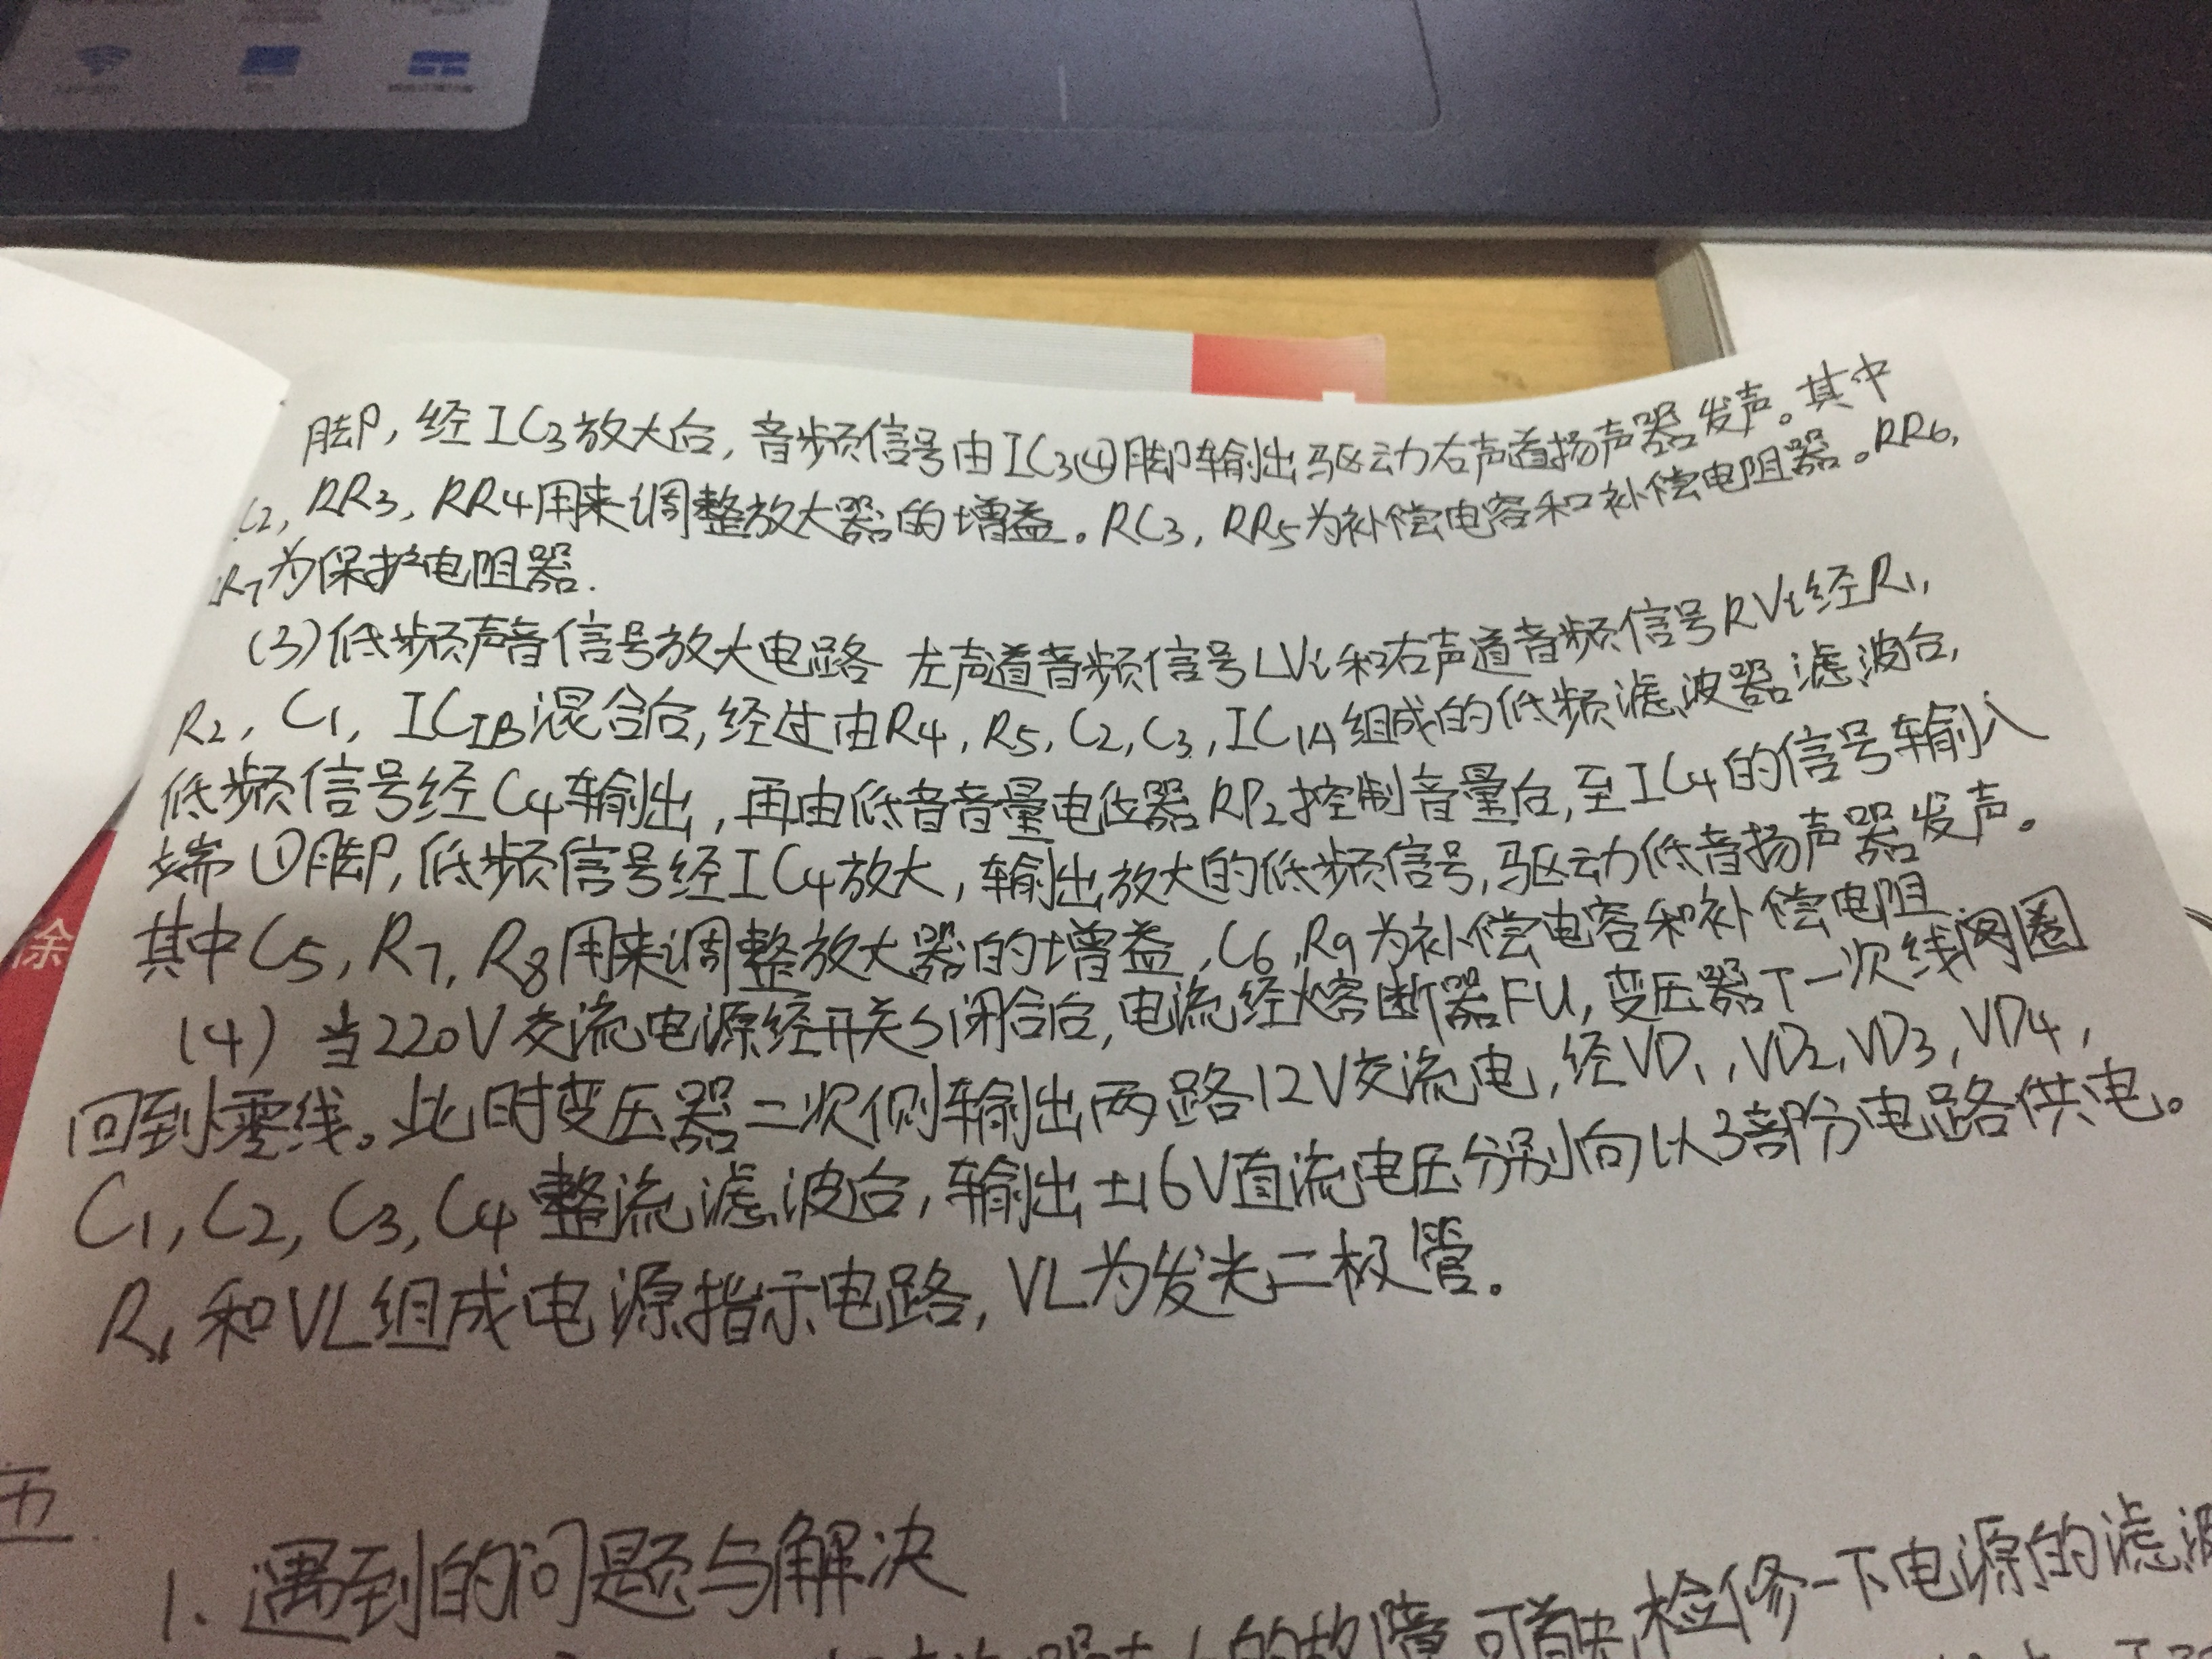 脚，经IC3放大后，音频信号由IC3④脚输出驱动右声道扬声器发声。其中
C2，RR3，RR4用来调整放大器的增益。RC3，RR5为补偿电容和补偿电阻器。RR6，
R7为保护电阻器.
(3)低频声音信号放大电路 左声道音频信号LVi和右声道音频信号RVi经R1，
R2，C1，ICIB混合后，经过由R4，R5，C2，C3，IC1A组成的低频滤波器滤波后，
低频信号经C4输出，再由低音音量电位器RP2控制音量后，至IC4的信号输入
端①脚，低频信号经IC4放大，输出放大的低频信号，驱动低音扬声器发声。
其中C5，R7，R8用来调整放大器的增益，C6，R9为补偿电容和补偿电阻.
(4) 当220V交流电源经开关S1闭合后，电流经熔断器FU，变压器T一次线圈
回到零线。此时变压器二次侧输出两路12V交流电，经VD1，VD2，VD3，VD4，
C1，C2，C3，C4整流滤波后，输出±16V直流电压分别向以3部分电路供电。
R1和VL组成电源指示电路，VL为发光二极管。
五.
1. 遇到的问题与解决
的故障 可首先检修一下电源的滤波
余